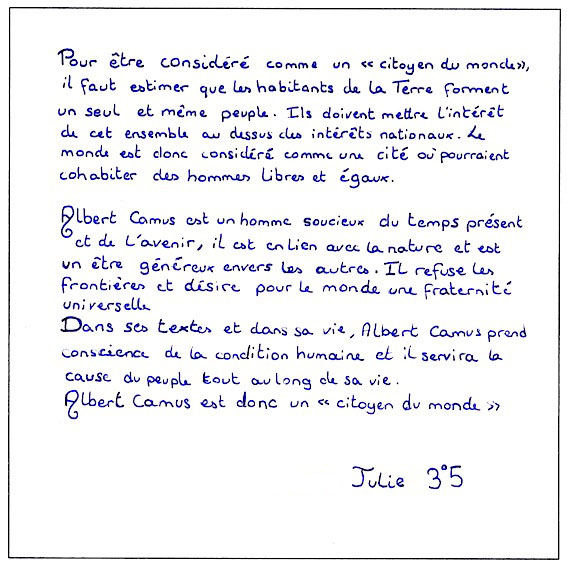 Pour être considéré comme un « citoyen du monde »,
il faut estimer que les habitants de la Terre forment
un seul et même peuple. Ils doivent mettre l'intérêt
de cet ensemble au dessus des intérêts nationaux. Le
monde est donc considéré comme une cité où pourraient
cohabiter des hommes libres et égaux.
Albert Camus est un homme soucieux du temps présent
et de l'avenir, il est en lien avec la nature et est
un être généreux envers les autres. Il refuse les
frontières et désire pour le monde une fraternité
universelle
Dans ses textes et dans sa vie, Albert Camus prend
conscience de la condition humaine et il servira la
cause du peuple tout au long de sa vie.
Albert Camus est donc un « citoyen du monde »
Julie 3°5